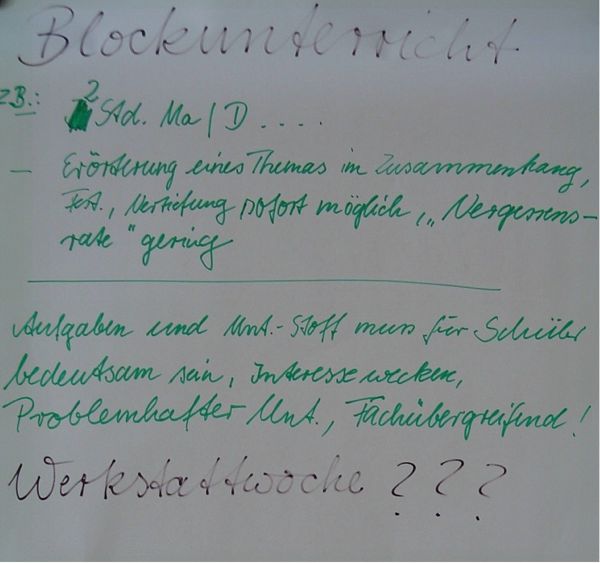 Blockunterricht.
z.B.: 2 Std. Ma / D . . . .
– Erörterung eines Themas im Zusammenhang,
Fest., Vertiefung sofort möglich, „Vergessens-
rate" gering
Aufgaben und Unt.-Stoff muss für Schüler
bedeutsam sein, Interesse wecken,
Problemhafter Unt., Fachübergreifend!
Werkstattwoche ? ? ?